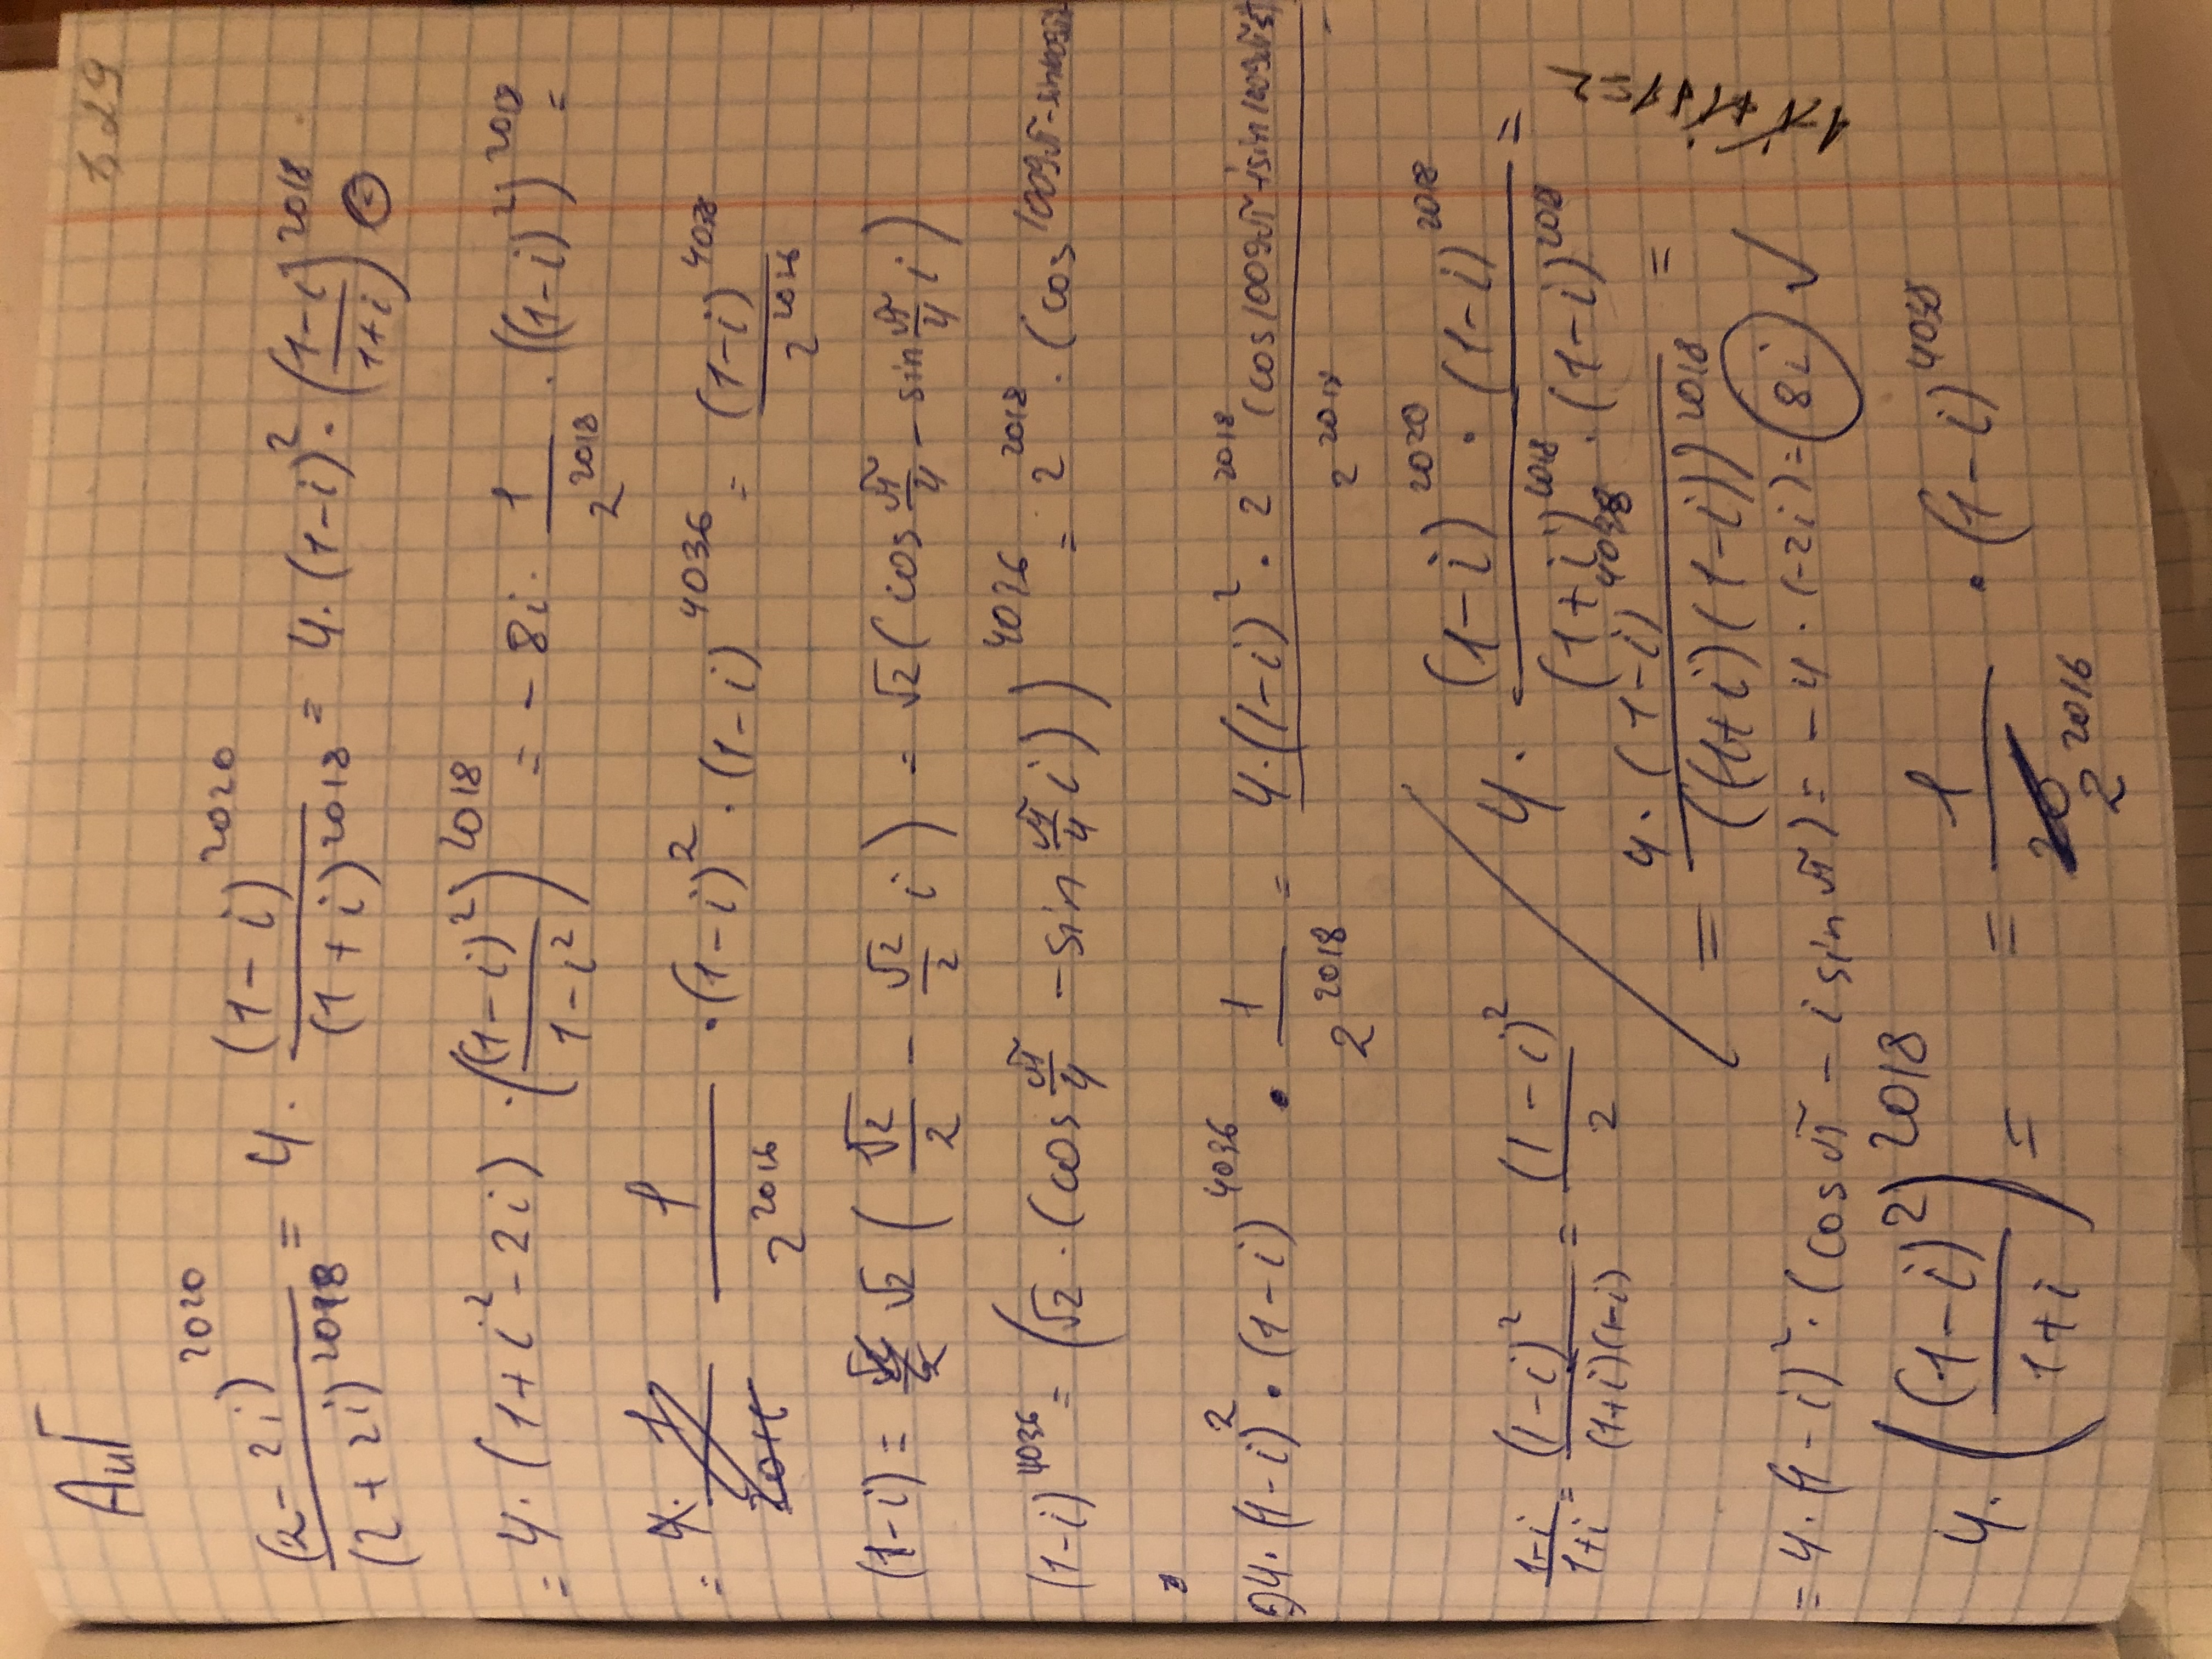 АиГ
1,29
(2-2i)^2020 / (2+2i)^2018 = 4 · (1-i)^2020 / (1+i)^2018 = 4 · (1-i)^2 · ((1-i)/(1+i))^2018 ⊜
= 4 · (1+i^2-2i) · ((1-i)^2 / (1-i^2))^2018 = -8i · 1/2^2018 · ((1-i)^2)^2018 =
= 1/2^2016 · (1-i)^2 · (1-i)^4036 = (1-i)^4038 / 2^2016
(1-i) = √2 (√2/2 - √2/2 i) = √2 (cos π/4 - sin π/4 i)
(1-i)^4036 = (√2 · (cos π/4 - sin π/4 i))^4036 = 2^2018 · (cos 1009π - sin 1009π i
4 · (1-i)^2 · (1-i)^4036 · 1/2^2018 = 4·(1-i)^2 · 2^2018 (cos 1009π - i sin 1009π) / 2^2018
4 · (1-i)^2020 · (1-i)^2018 / (1+i)^2018 · (1-i)^2018 =
(1-i)/(1+i) = (1-i)^2 / (1+i)(1-i) = (1-i)^2 / 2
= 4 · (1-i)^4038 / ((1+i)(1-i))^2018 =
= 4 · (1-i)^2 · (cos π - i sin π) = -4 · (-2i) = 8i ✓
4 · ((1-i)^2 / (1+i))^2018 = = 1/2^2016 · (1-i)^4038